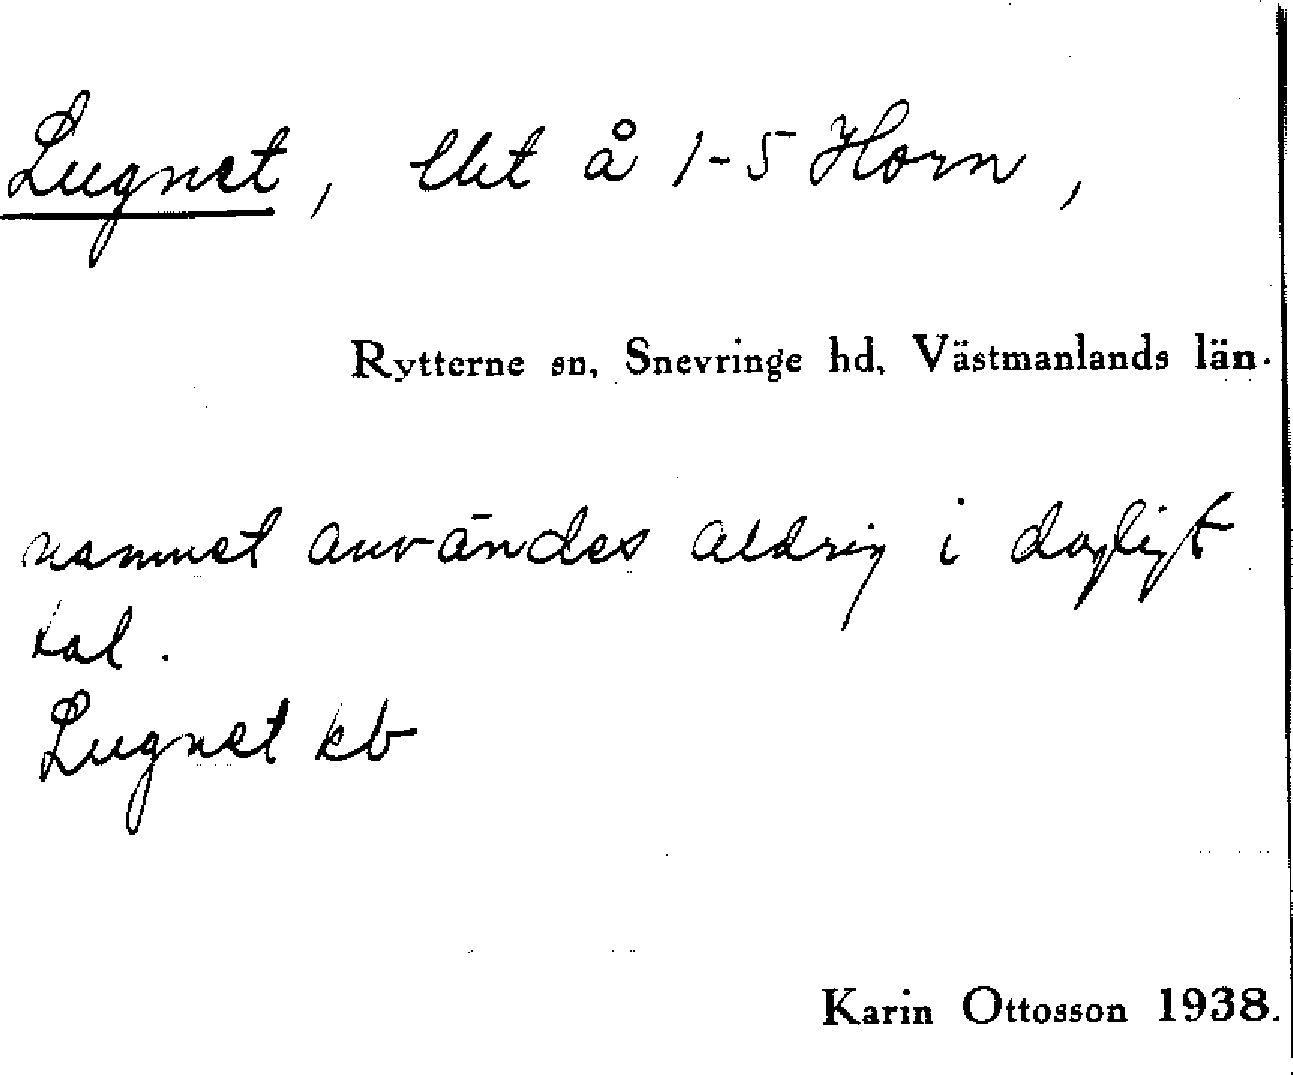 Lugnet, lht å 1-5 Horn,
Rytterne sn, Snevringe hd, Västmanlands län.
namnet användes aldrig i dagligt
tal.
Lugnet kb
Karin Ottosson 1938.